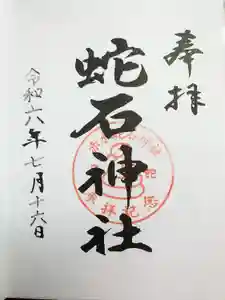 奉拝
蛇石神社
令和六年七月十六日